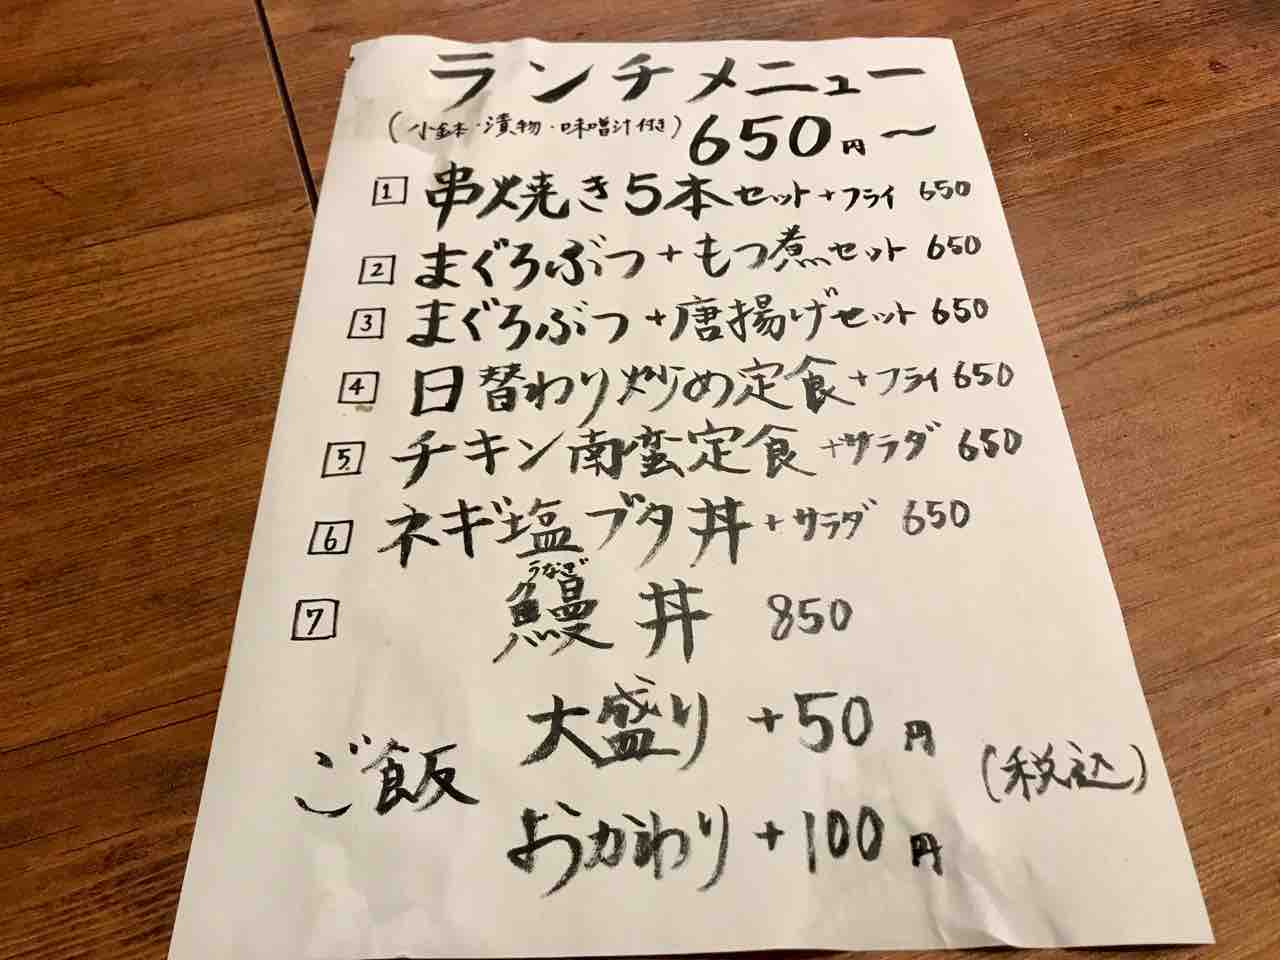 ランチメニュー
(小鉢・漬物・味噌汁付き) 650円〜
1 串焼き5本セット+フライ 650
2 まぐろぶつ+もつ煮セット 650
3 まぐろぶつ+唐揚げセット 650
4 日替わり炒め定食+フライ 650
5 チキン南蛮定食+サラダ 650
6 ネギ塩ブタ丼+サラダ 650
うなぎ
7 鰻丼 850
大盛り +50円
ご飯 (税込)
おかわり +100円